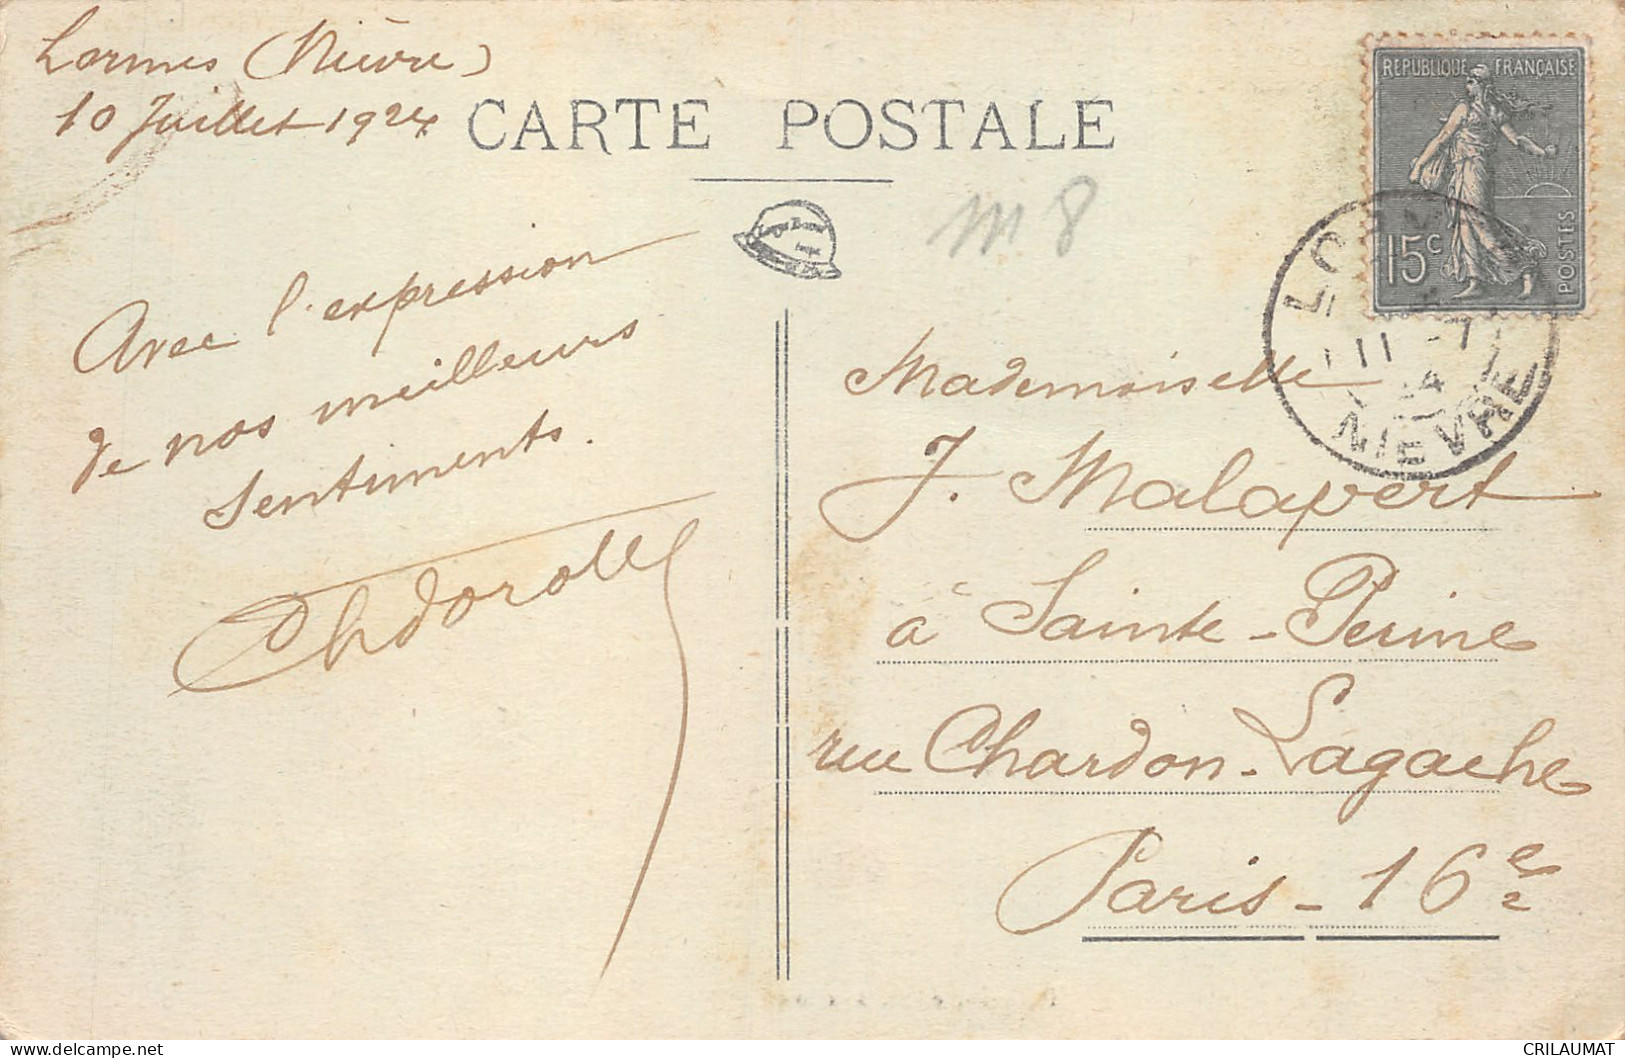 Lormes (Nièvre)
10 Juillet 1924
CARTE POSTALE
m 8
RÉPUBLIQUE FRANÇAISE
15c
POSTES
11 - 7
24
NIEVRE
Avec l'expression
de nos meilleurs
sentiments.
Mademoiselle
J. Malapert
à Sainte-Perine
rue Chardon-Lagache
Paris - 16e
CRILAUMAT